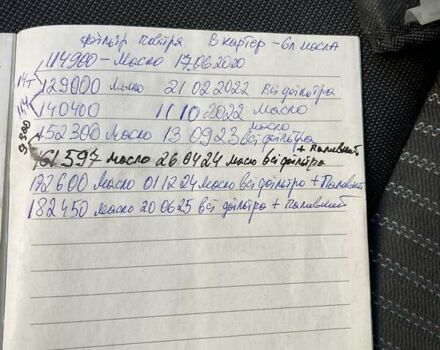 фільтр повітря В картер - 6 л. масла
114900 - Масло 17.06 2020
14т 129000 Масло 21 02 2022 Всі фільтра
11,4 140400 11 10 2022 Масло
152300 Масло 13 09 23 масло всі фільтра
9.300 161.597 масло 26 04 24 масло всі фільтра + паливний
172600 Масло 01 12 24 масло всі фільтра + Паливний
182450 масло 20 06 25 всі фільтра + Паливний